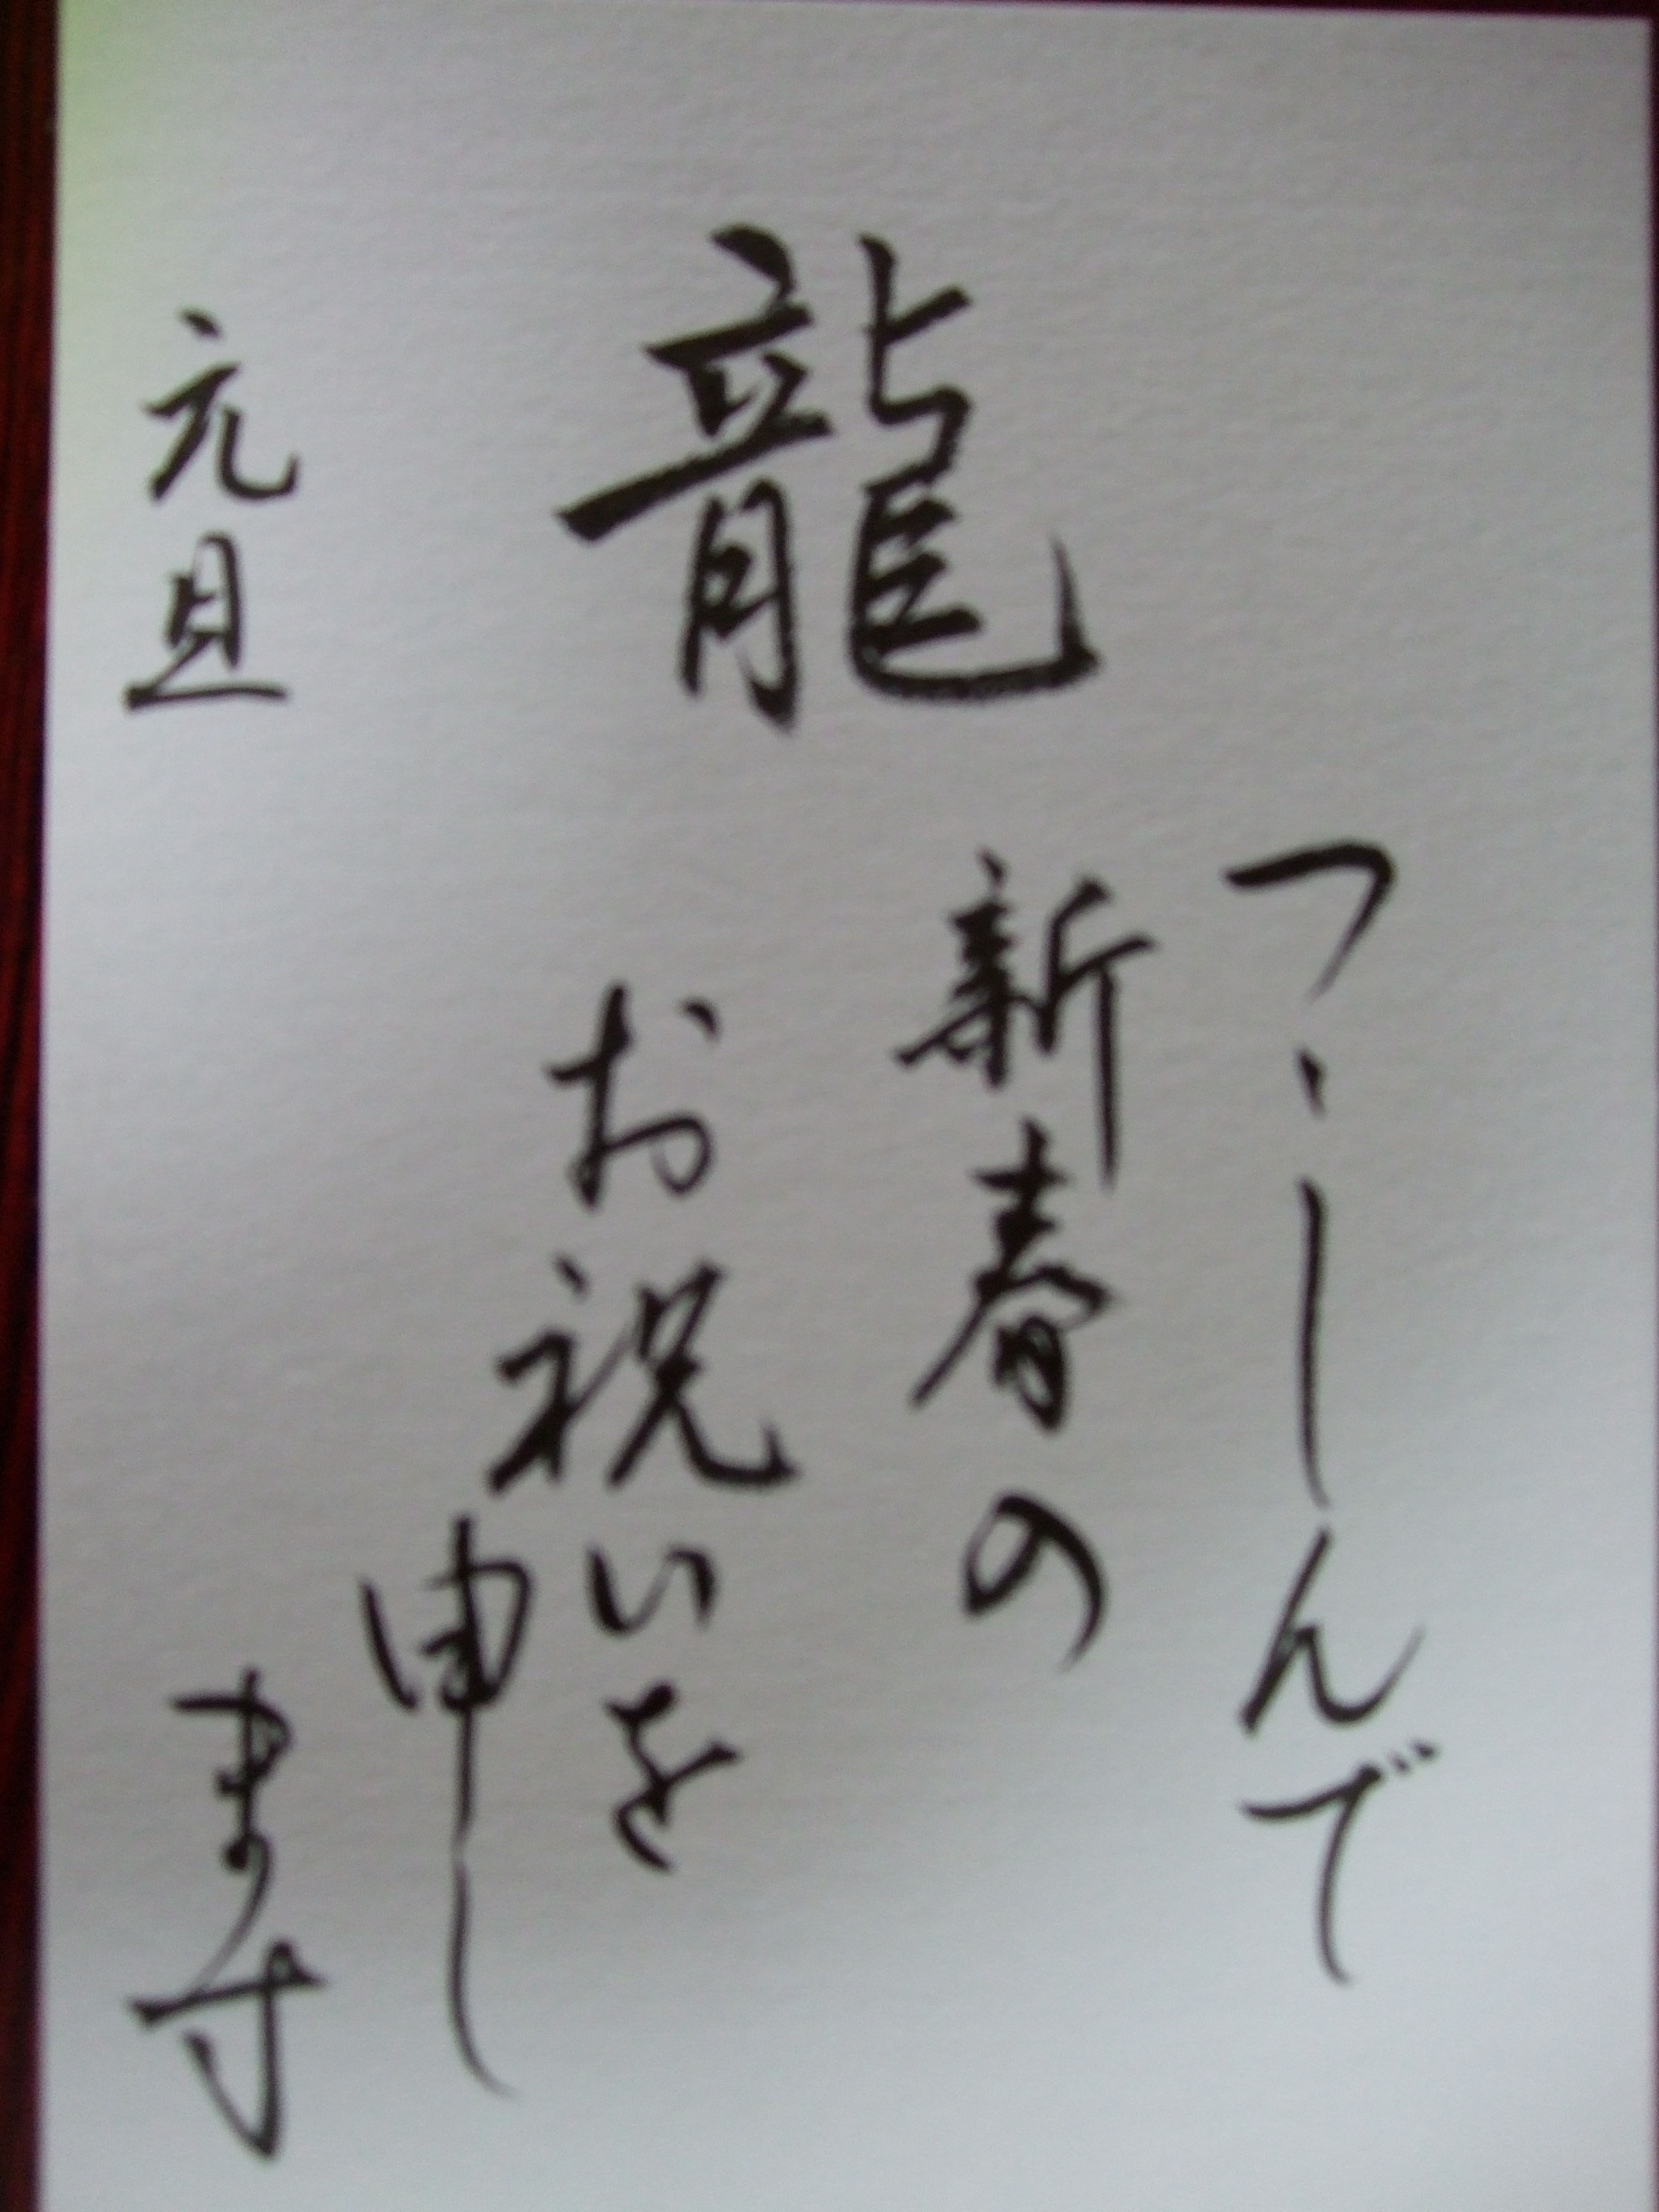 龍
つゝしんで
新春の
お祝いを
申し
ます
元旦